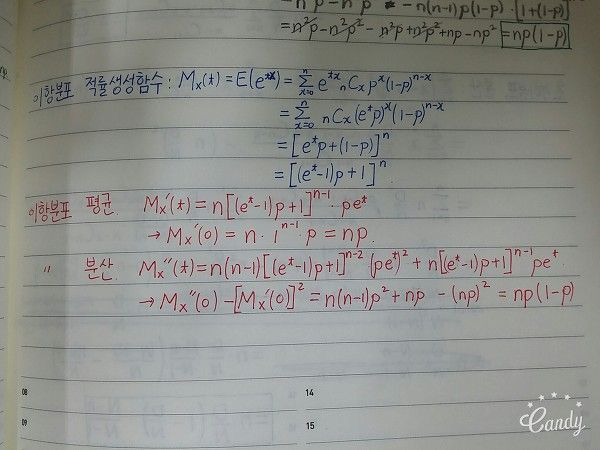 -n²p-n²p² -n(n-1)p(1-p)·[1+(1-p)]
=n²p-n²p²-n²p+n²p²+np-np²=np(1-p)
이항분포 적률생성함수: Mx(t)=E(e^tx)=Σ(x=0→n) e^tx nCx p^x(1-p)^n-x
=Σ(x=0→n) nCx(e^t p)^x(1-p)^n-x
=[e^t p+(1-p)]^n
=[(e^t-1)p+1]^n
이항분포 평균. Mx'(t)=n[(e^t-1)p+1]^n-1·pe^t
→Mx'(0)=n·1^n-1·p=np.
" 분산. Mx"(t)=n(n-1)[(e^t-1)p+1]^n-2(pe^t)²+n[(e^t-1)p+1]^n-1 pe^t.
→Mx"(0)-[Mx'(0)]²=n(n-1)p²+np-(np)²=np(1-p)
08 14
09 15
Candy